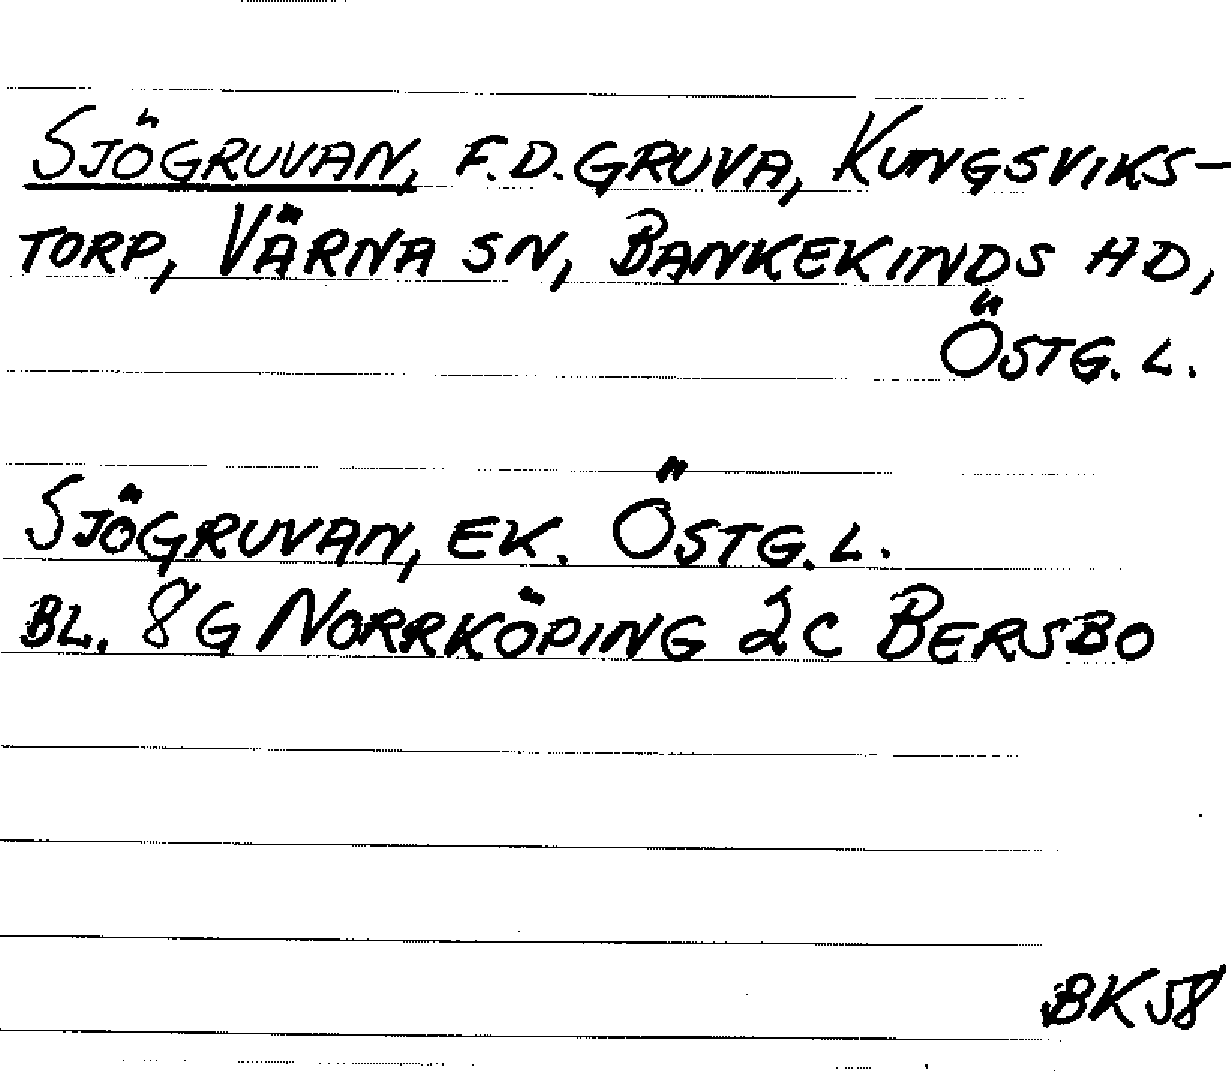 SJÖGRUVAN, F.D. GRUVA, KUNGSVIKS-
TORP, VÄRNA SN, BANKEKINDS HD,
ÖSTG. L.
SJÖGRUVAN, EK. ÖSTG. L.
BL. 8G NORRKÖPING 2C BERSBO
BK58